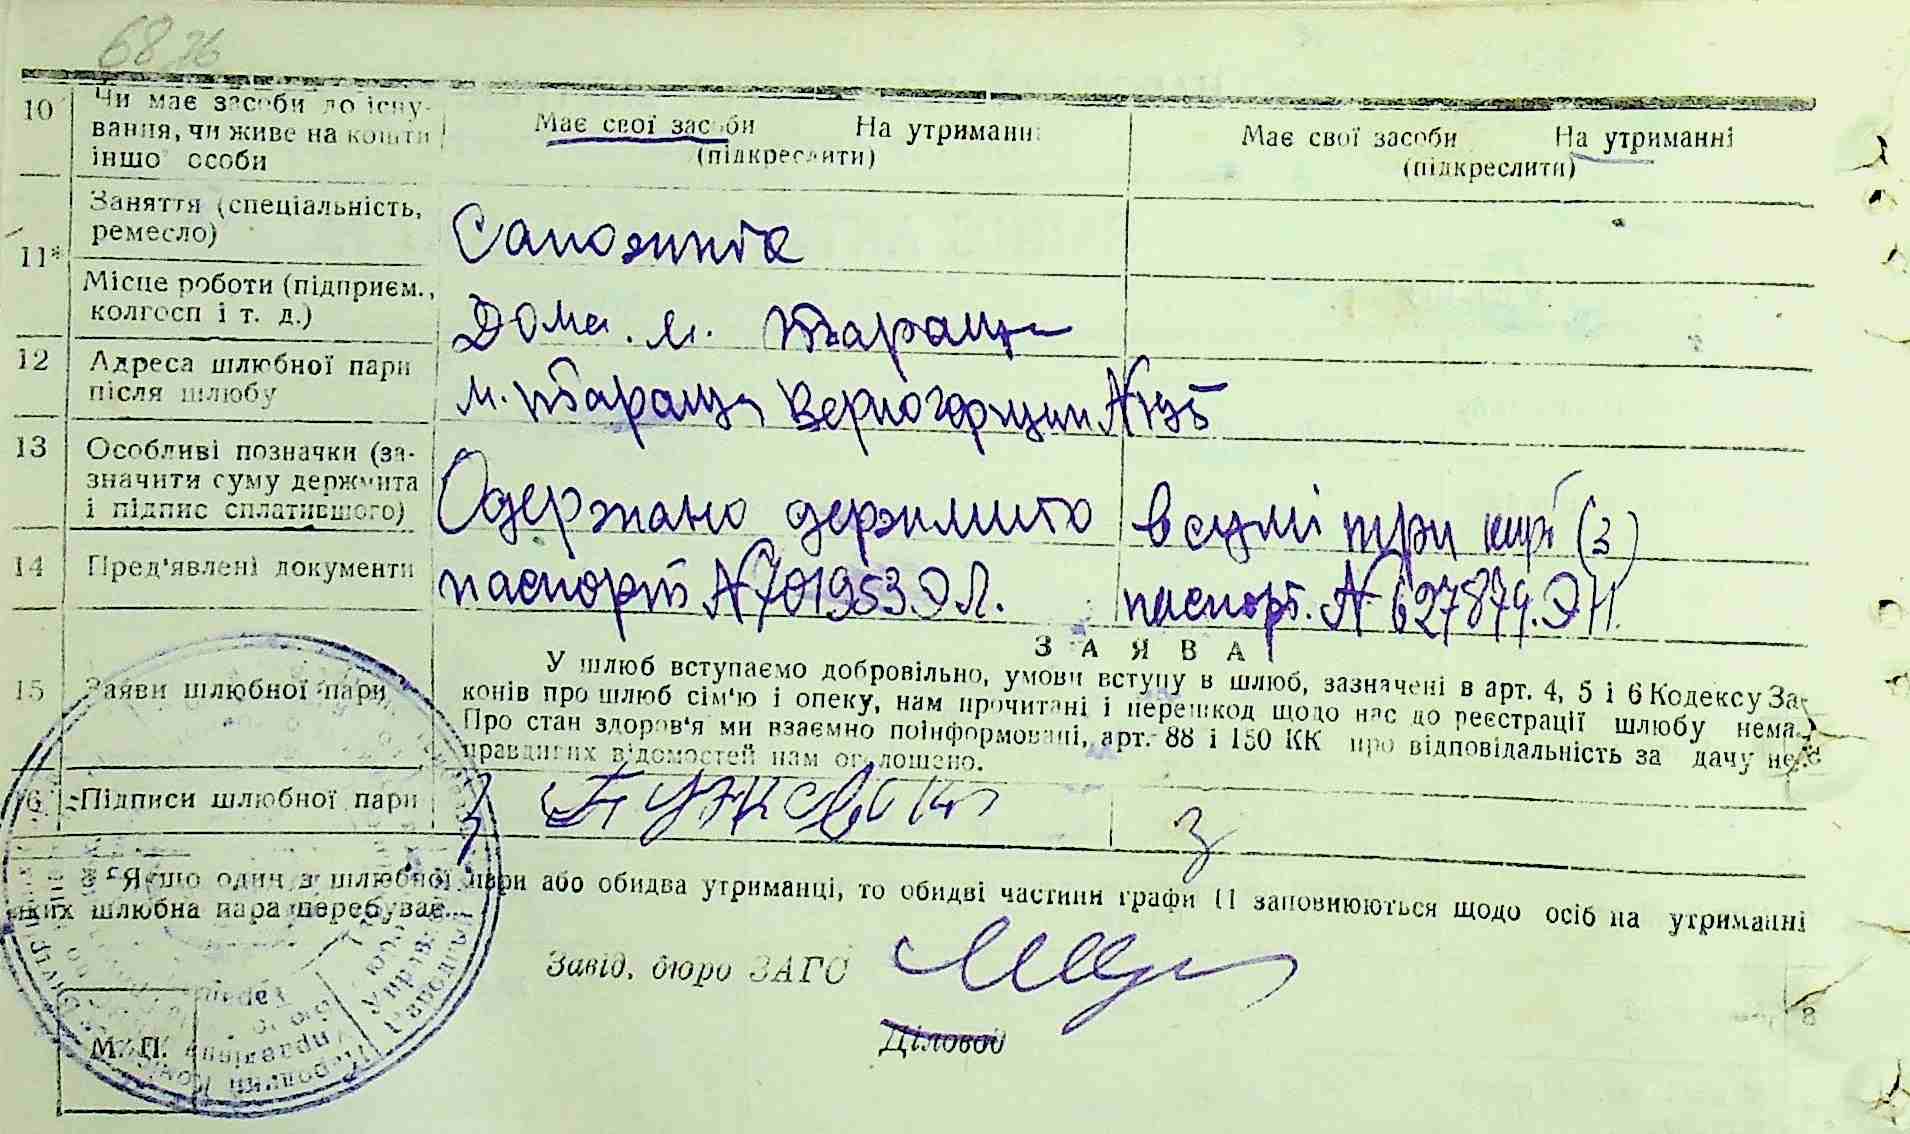 68 зв
10 Чи має засоби до існу-
вання, чи живе на кошти
іншої особи
Має свої засоби На утриманні
(підкреслити)
Має свої засоби На утриманні
(підкреслити)
11* Заняття (спеціальність,
ремесло)
Сапожник
Місце роботи (підприєм.,
колгосп і т. д.)
Дома. м. Тараща
12 Адреса шлюбної пари
після шлюбу
м. Тараща №195
13 Особливі позначки (за-
значити суму держмита
і підпис сплатившого)
Одержано держмито в сумі три крб (3)
14 Пред'явлені документи
паспорт № 701953.ЭЛ.
паспорт. № 627874.ЭН.
ЗАЯВА
15 Заяви шлюбної пари
У шлюб вступаємо добровільно, умови вступу в шлюб, зазначені в арт. 4, 5 і 6 Кодексу За-
конів про шлюб сім'ю і опеку, нам прочитані і перешкод щодо нас до реєстрації шлюбу нема.
Про стан здоров'я ми взаємно поінформовані, арт. 88 і 150 КК про відповідальність за дачу не-
правдивих відомостей нам оголошено.
16 Підписи шлюбної пари
*Якщо один з шлюбної пари або обидва утриманці, то обидві частини графи 11 заповнюються щодо осіб на утриманні
яких шлюбна пара перебуває.
Завід. бюро ЗАГС
Діловод
М. П.